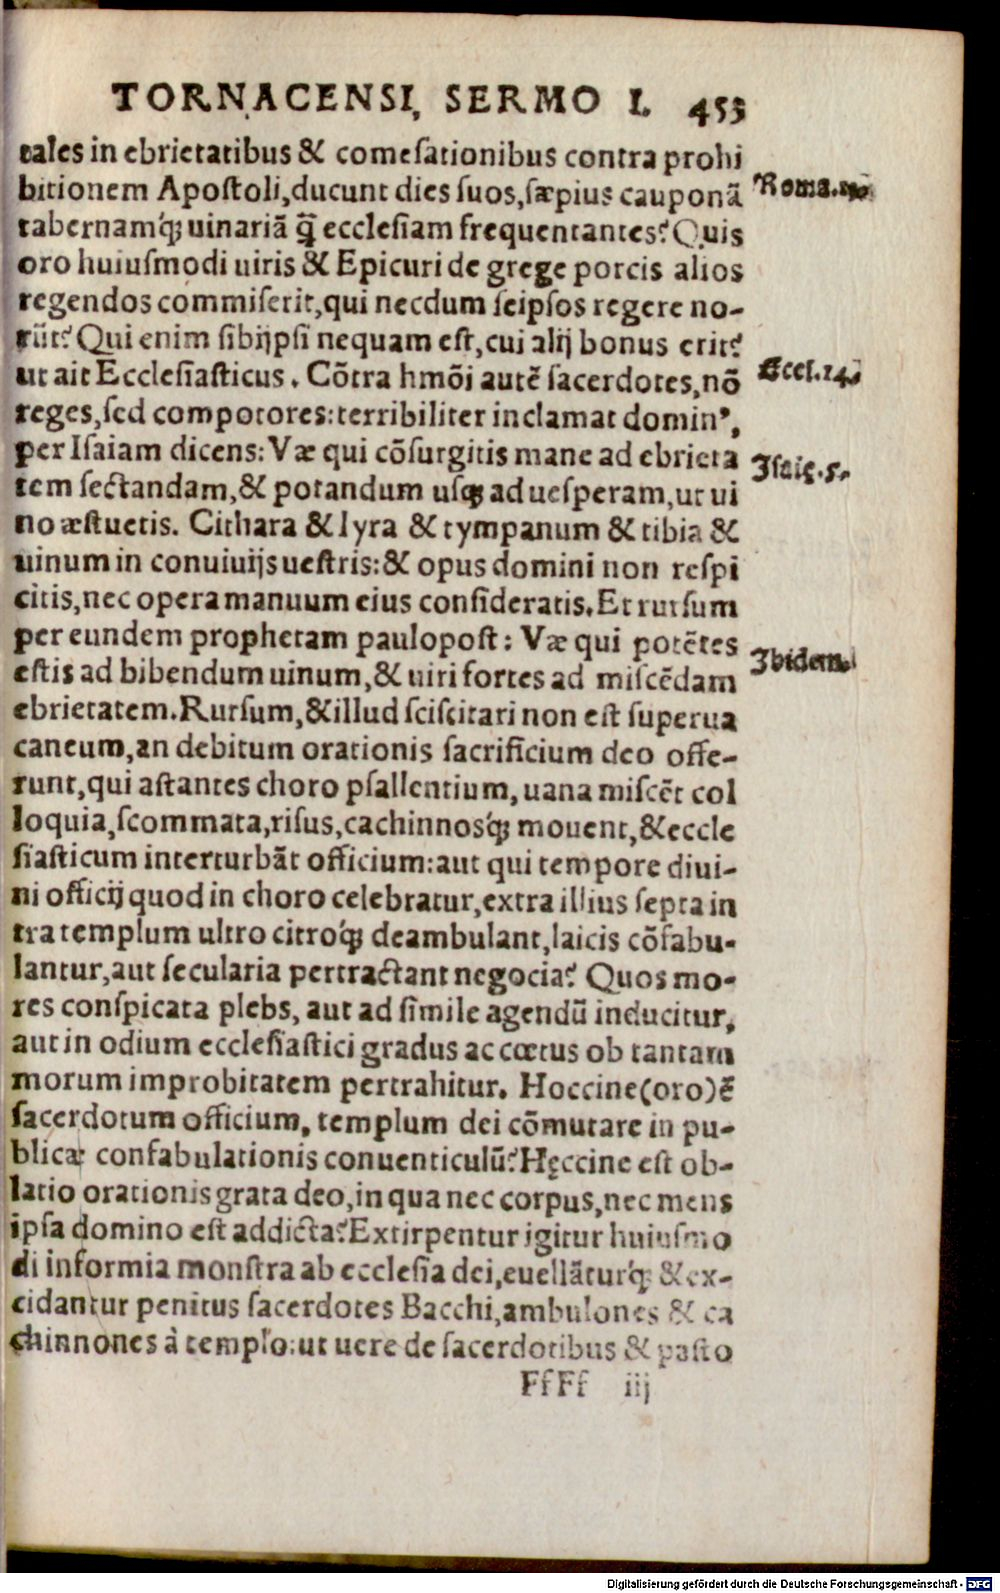 TORNACENSI, SERMO I. 453
tales in ebrietatibus & comesationibus contra prohi
bitionem Apostoli, ducunt dies suos, sæpius cauponã
tabernamq́; uinariã q̃ ecclesiam frequentantes? Quis
oro huiusmodi uiris & Epicuri de grege porcis alios
regendos commiserit, qui necdum seipsos regere no-
rũt? Qui enim sibijpsi nequam est, cui alij bonus erit?
ut ait Ecclesiasticus. Cõtra hmõi autẽ sacerdotes, nõ
reges, sed compotores: terribiliter inclamat domin⁹,
per Isaiam dicens: Væ qui cõsurgitis mane ad ebrieta
tem sectandam, & potandum usq; ad uesperam, ut ui
no æstuetis. Cithara & lyra & tympanum & tibia &
uinum in conuiuijs uestris: & opus domini non respi
citis, nec opera manuum eius consideratis. Et rursum
per eundem prophetam paulopost: Væ qui potẽtes
estis ad bibendum uinum, & uiri fortes ad miscẽdam
ebrietatem. Rursum, & illud sciscitari non est superua
caneum, an debitum orationis sacrificium deo offe-
runt, qui astantes choro psallentium, uana miscẽt col
loquia, scommata, risus, cachinnosq́; mouent, & eccle
siasticum interturbãt officium: aut qui tempore diui-
ni officij quod in choro celebratur, extra illius septa in
tra templum ultro citroq́; deambulant, laicis cõfabu-
lantur, aut secularia pertractant negocia? Quos mo-
res conspicata plebs, aut ad simile agendũ inducitur,
aut in odium ecclesiastici gradus ac cœtus ob tantam
morum improbitatem pertrahitur. Hoccine (oro) ẽ
sacerdotum officium, templum dei cõmutare in pu-
blicæ confabulationis conuenticulũ? Hęccine est ob-
latio orationis grata deo, in qua nec corpus, nec mens
ipsa domino est addicta? Extirpentur igitur huiusmo
di informia monstra ab ecclesia dei, euellãturq́; & ex-
cidantur penitus sacerdotes Bacchi, ambulones & ca
chinnones à templo: ut uere de sacerdotibus & pasto
FfFf iij
Roma.
Eccl.14.
Isaię.5.
Ibidem
Digitalisierung gefördert durch die Deutsche Forschungsgemeinschaft - DFG